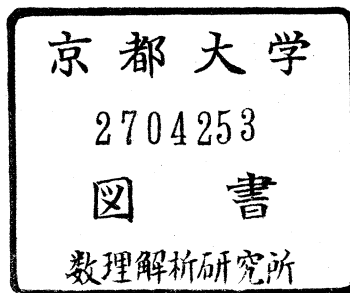 京都大学
2704253
図書
数理解析研究所